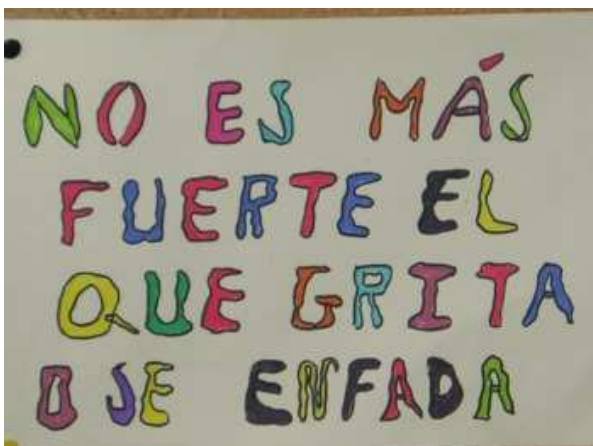 NO ES MÁS
FUERTE EL
QUE GRITA
O SE ENFADA